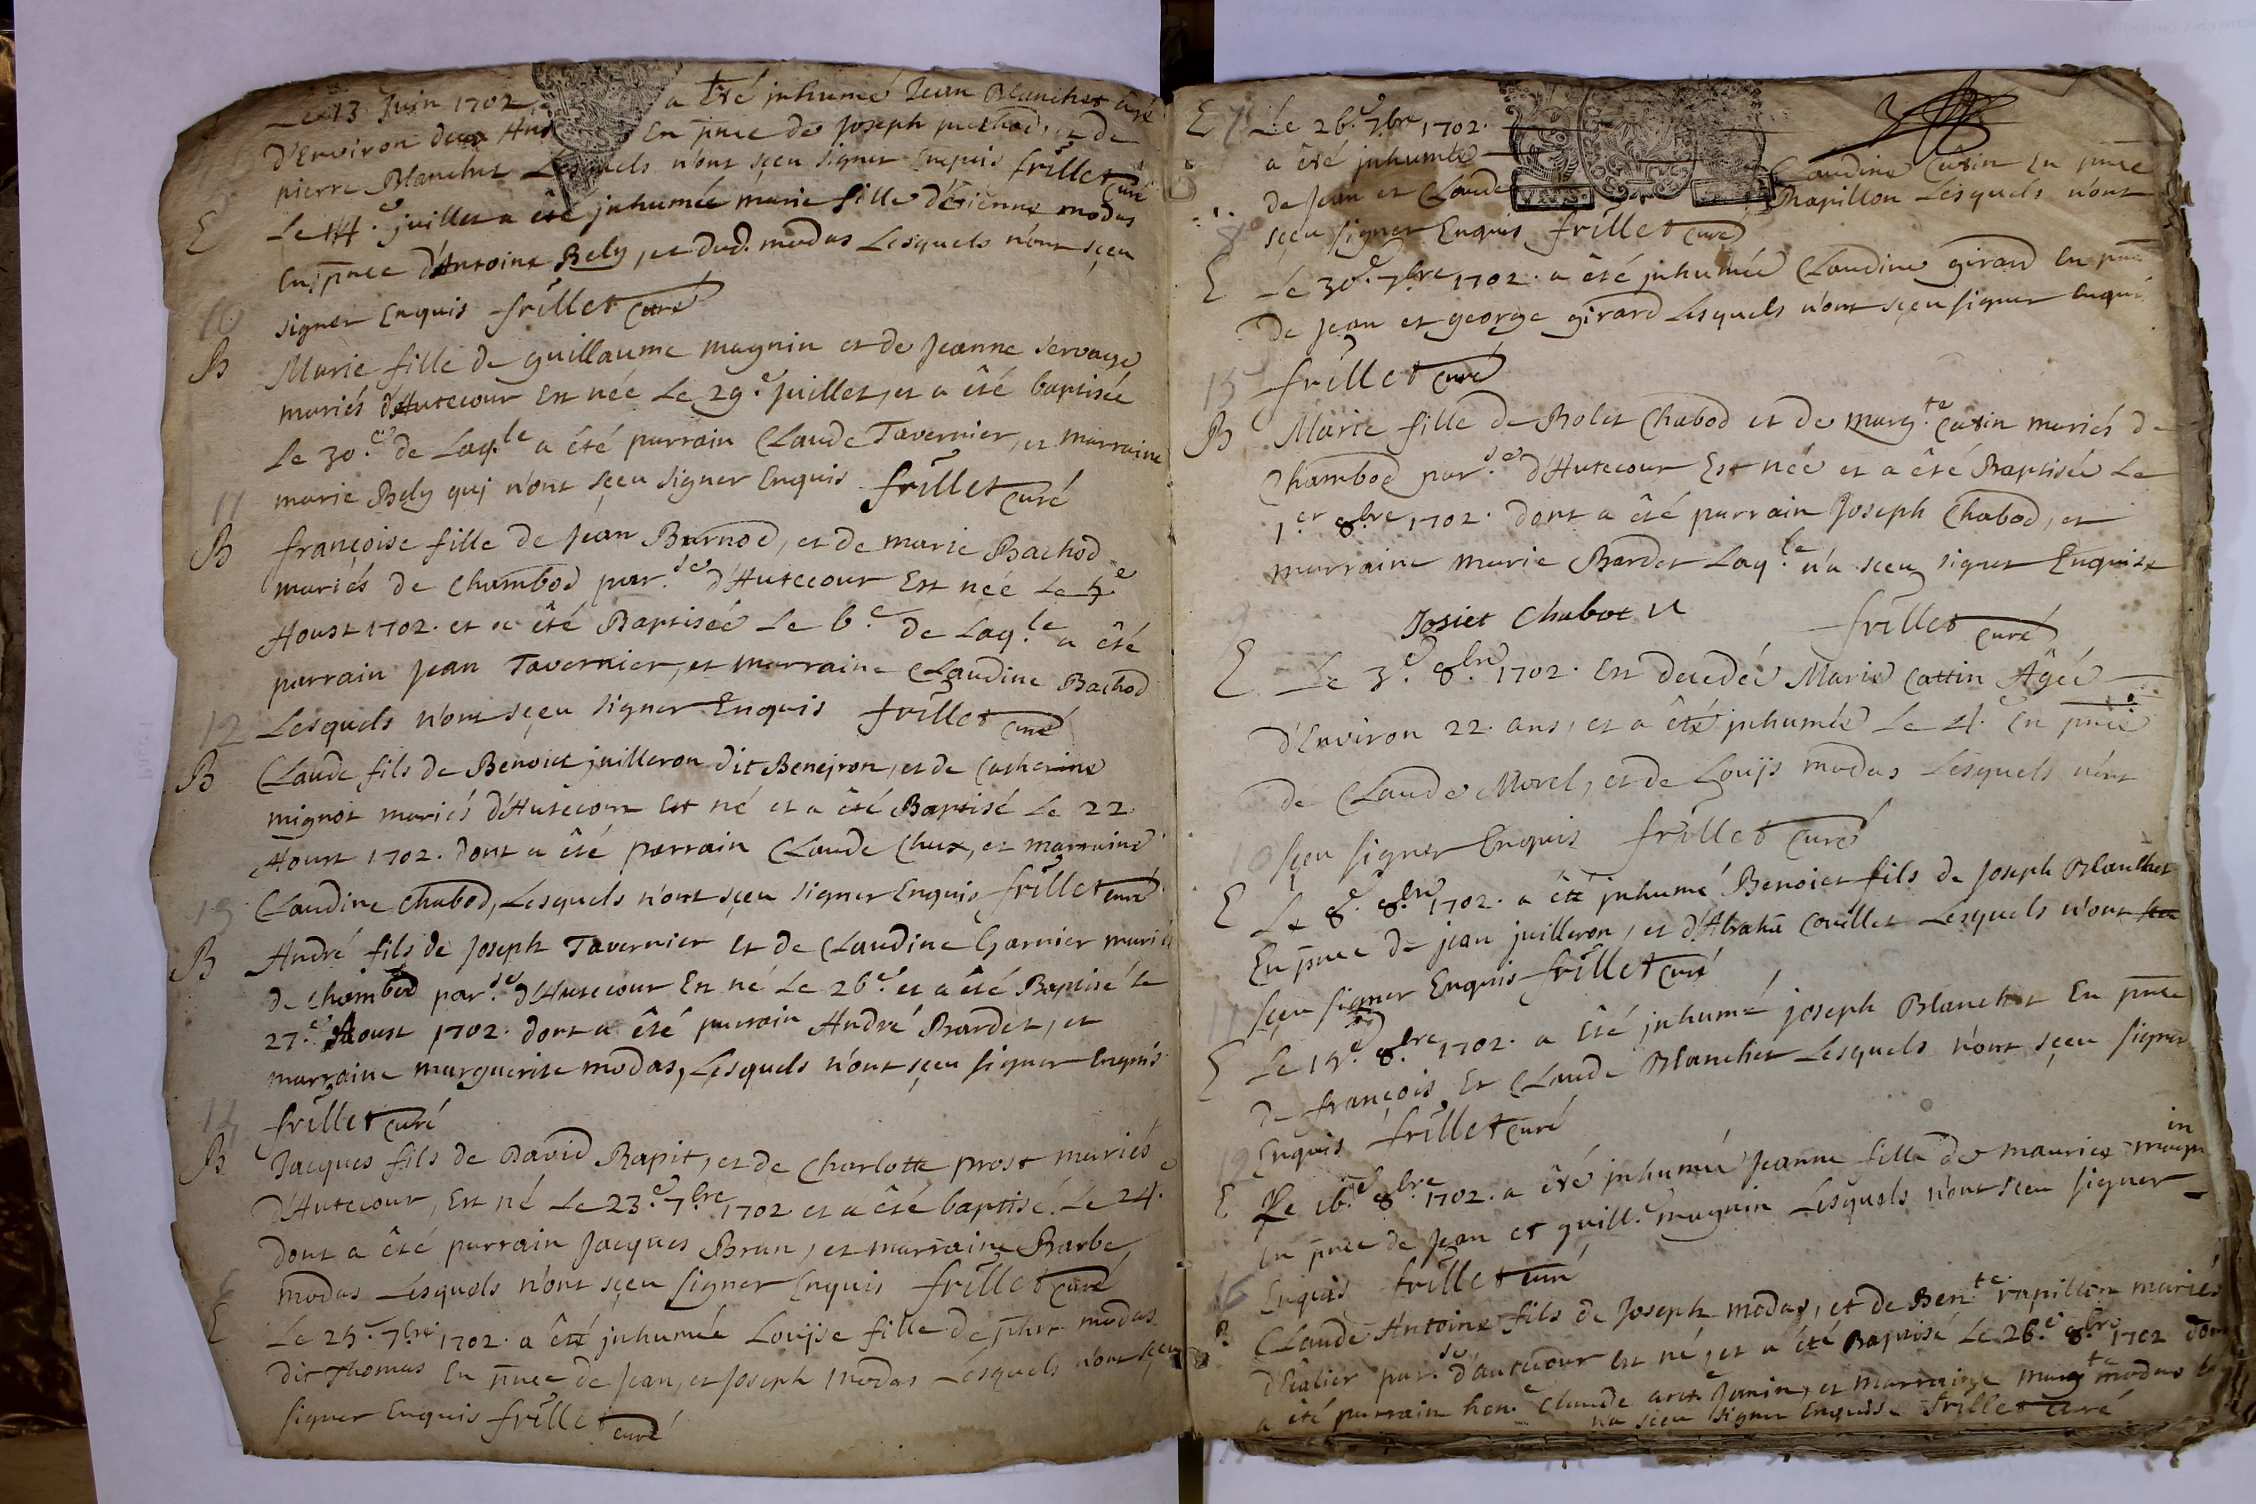 Le 13 Juin 1702 a été jnhumé Jean Blanchet âgé
d'Environ deux Ans En pnce de Joseph et de
pierre Blanchet Lesquels n'ont sçeu signer Enquis frillet Curé
E Le 14.e juillet a été jnhumée marie fille d'Etienne modas
En pnce d'Antoine Bely, et dud. modas Lesquels n'ont sçeu
signer Enquis frillet Curé
10
B Marie fille de guillaume magnin et de Jeanne Servage
mariés d'Autecour Est née Le 29.e juillet, et a été baptisée
Le 30.e de Laq.le a été parrain Claude Tavernier, et marraine
marie Bely quj n'ont sçeu signer Enquis frillet curé
11
B françoise fille de Jean Burnod, et de marie Bachod
mariés de Chambod par.se d'Autecour Est née Le 5e
Aoust 1702. et a été Baptisée Le 6.e de Laq.le a été
parrain Jean Tavernier, et marraine Claudine Bachod
Lesquels n'ont sçeu signer Enquis frillet curé
12
B Claude fils de Benoict juilleron dit Benejron, et de Catherine
mignot mariés d'Autecour Est né et a été Baptisé Le 22
Aoust 1702. dont a été parrain Claude Chux, et marraine
Claudine Chabod, Lesquels n'ont sçeu signer Enquis frillet curé
13
B André fils de Joseph Tavernier et de Claudine Garnier mariés
de Chambod par.se d'Autecour Est né Le 26.e et a été Baptisé Le
27.e Aoust 1702. dont a été parrain André Bardet, et
marraine marguerite modas, Lesquels n'ont sçeu signer Enquis
frillet curé
14
B Jacques fils de David Rapit, et de Charlotte prost mariés
d'Autecour, Est né Le 23.e 7.bre 1702 et a été baptisé Le 24.e
dont a été parrain Jacques Brun, et marraine Barbe
modas Lesquels n'ont sçeu signer Enquis frillet Curé
6
E Le 25.e 7.bre 1702. a été jnhumée Loujse fille de modas
dit Thomas En pnce de Jean, et Joseph modas Lesquels n'ont sçeu
signer Enquis frillet curé
E 7 Le 26.e 7.bre 1702.
a été jnhumée Claudine Catin En pnce
de Jean et Claude Rapillon Lesquels n'ont
sçeu signer Enquis frillet curé
8
E Le 30.e 7.bre 1702. a été jnhumée Claudine girard En pnce
de Jean et george girard Lesquels n'ont sçeu signer Enquis
frillet curé
15
B Marie fille de Bolet Chabod et de marg.te Catin mariés de
Chambod par.se d'Autecour Est née et a été Baptisée Le
1.er 8.bre 1702. dont a été parrain Joseph Chabod, et
marraine marie Bardet Laq.le n'a sceu signer Enquise
Josiet Chabot frillet curé
9
E Le 3.e 8.bre 1702. Est decedée Marie Cattin Âgée
d'Environ 22. ans, et a été jnhumée Le 4.e En pnce
de Claude Morel, et de Loujs modas Lesquels n'ont
sçeu signer Enquis frillet Curé
10
E Le 8.e 8.bre 1702. a été jnhumé Benoict fils de Joseph Blanchet
En pnce de jean juilleron, et d'Abrahā Couillet Lesquels n'ont
sçeu signer Enquis frillet curé
11
E Le 15.e 8.bre 1702. a été jnhumé joseph Blanchet En pnce
de françois Et Claude Blanchet Lesquels n'ont sçeu signer
Enquis frillet curé
12
E Le 16.e 8.bre 1702. a été jnhumée Jeanne fille de maurice magnin
En pnce de Jean et guill.e magnin Lesquels n'ont sceu signer
Enquis frillet curé
16
B Claude Antoine fils de Joseph modas, et de Ben.te rapillon mariés
d'Ealier par.se d'autecour Est né, et a été Baptisé Le 26.e 8.bre 1702 dont
a été parrain hon.e Claude ant. Janin, et marraine marg.te modas
n'a sceu signer Enquise frillet curé